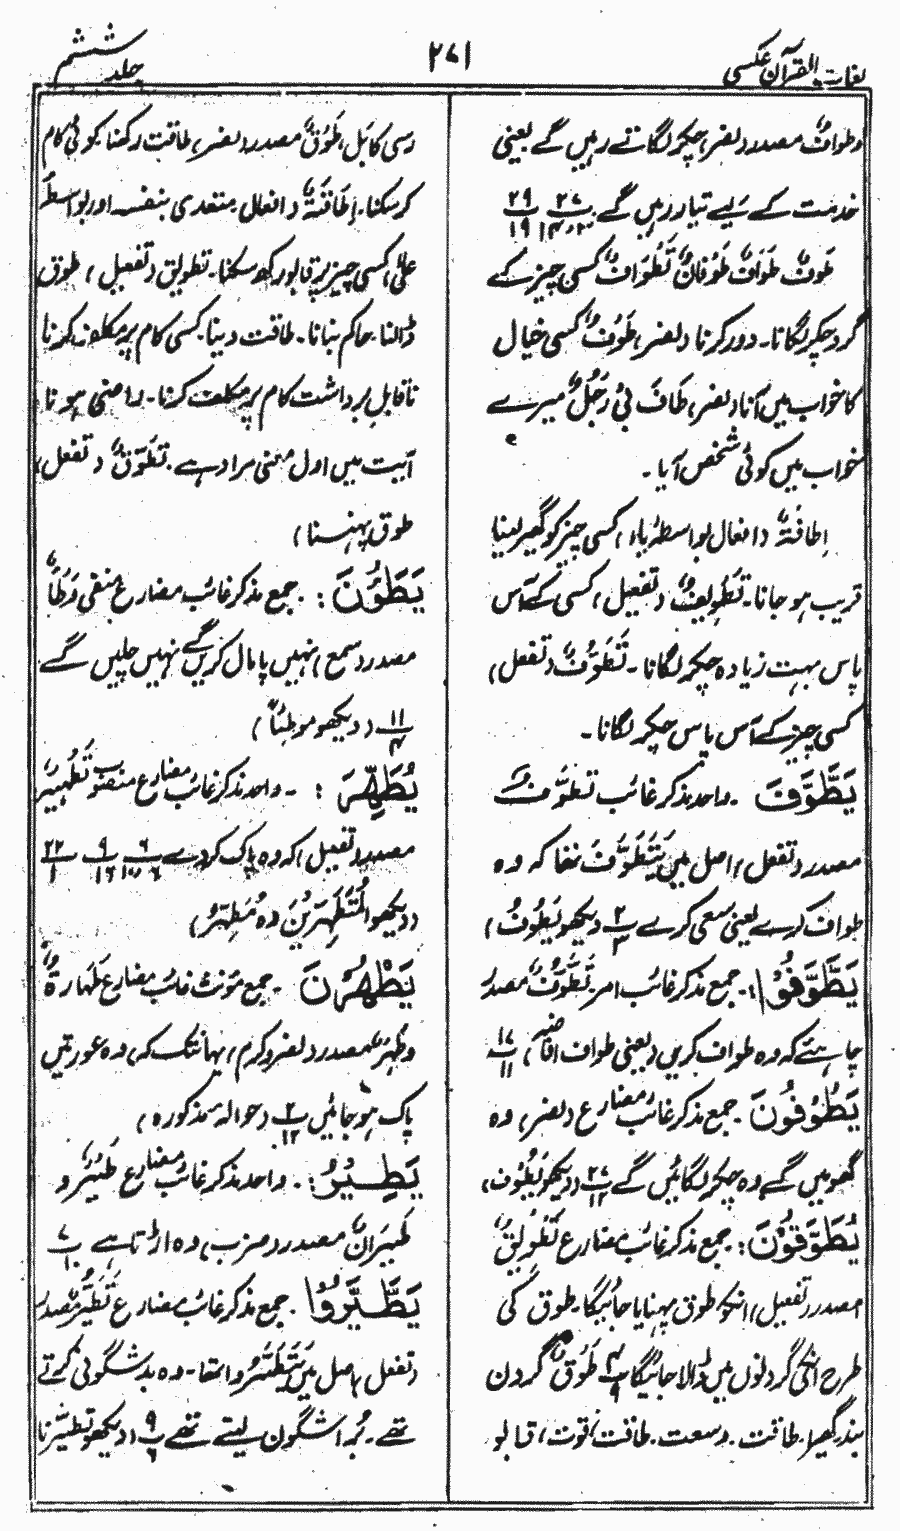 لغات القرآن عکسی
۲۷۱
جلد ششم
وطوافٌ مصدر دلنصر، چکر لگاتے رہیں گے یعنی
خدمت کے لیے تیار رہیں گے
طَوفٌ طَوَافٌ طَوَفَانٌ تَطْوَافٌ کسی چیز کے
گرد چکر لگانا۔ دور کرنا دلنصر، طَوفٌ کسی خیال
کا خواب میں آنا دلنصر، طَافَ بِیْ رَجُلٌ میرے
خواب میں کوئی شخص آیا۔
اِطَافَۃٌ د افعال بواسطہ باء، کسی چیز کو گھیر لینا
قریب ہو جانا۔ تَطْوِیْفٌ د تفعیل، کسی کے آس
پاس بہت زیادہ چکر لگانا۔ تَطَوُّفٌ د تفعل،
کسی چیز کے آس پاس چکر لگانا۔
یَطَّوَّفَ ۔ واحد مذکر غائب تطوُّفٌ
مصدر د تفعل، اصل میں یَتَطَوَّفَ تھا کہ وہ
طواف کرے یعنی سعی کرے ۲/۳ د دیکھو تَطُوْفُ)
یَطَّوَّفُوْا: جمع مذکر غائب امر۔ تَطَوُّفٌ مصدر
چاہئے کہ وہ طواف کریں د یعنی طواف افاضہ، ۱۷/۱۱
یَطُوْفُوْنَ ۔ جمع مذکر غائب مضارع د نصر، وہ
گھومیں گے وہ چکر لگائیں گے ۲۷/۱۲ د دیکھو تَطُوْفُ،
یُطَوَّقُوْنَ: جمع مذکر غائب مضارع تَطْوِیْقٌ
مصدر د تفعیل، انکو طوق پہنایا جائیگا۔ طوق کی
طرح انکی گردنوں میں ڈالا جائیگا ۴/۹ طَوْقٌ گردن
بند گھیرا۔ طاقت۔ وسعت۔ طاقت، قوت، قابو
رسی کا بَل، طَوْقٌ مصدر دلنصر، طاقت رکھنا کوئی کام
کر سکنا۔ اِطَاقَۃٌ د افعال متعدی بنفسہ اور بواسطہ
علیٰ، کسی چیز پر قابو رکھ سکنا۔ تطویق د تفعیل، طوق
ڈالنا حاکم بنانا۔ طاقت دینا۔ کسی کام پر مکلف کرنا
ناقابل برداشت کام پر مکلف کرنا۔ راضی ہونا
آیت میں اول معنی مراد ہے۔ تَطَوُّقٌ د تفعل،
طوق پہننا)
یَطَئُوْنَ: ۔ جمع مذکر غائب مضارع منفی وَطْأً
مصدر د سمع، نہیں پامال کریں گے نہیں چلیں گے
۱۱/۴ د دیکھو موطئاً)
یُطَهِّرَ : ۔ واحد مذکر غائب مضارع منصوب تطہیرٌ
مصدر د تفعیل، کہ وہ پاک کر دے
د دیکھو المُتَطَهِّرِیْنَ وہ مُطَهَّرٌ)
یَطْهُرْنَ ۔ جمع مؤنث غائب مضارع طہارۃٌ
وطُہرٌ مصدر د لنصر و کرم، یہانتک کہ وہ عورتیں
پاک ہو جائیں ۲/۱۲ د حوالہ مذکورہ)
یَطِیْرُ: ۔ واحد مذکر غائب مضارع طَیْرٌ و
طَیَرَانٌ مصدر د ضرب، وہ اڑتا ہے
یَطَّیَّرُوْا ۔ جمع مذکر غائب مضارع تَطَیُّرٌ مصدر
د تفعل، اصل میں یَتَطَیَّرُوا تھا۔ وہ بدشگونی کرتے
تھے۔ بُرا شگون لیتے تھے ۹/۶ د دیکھو تطیّرنا